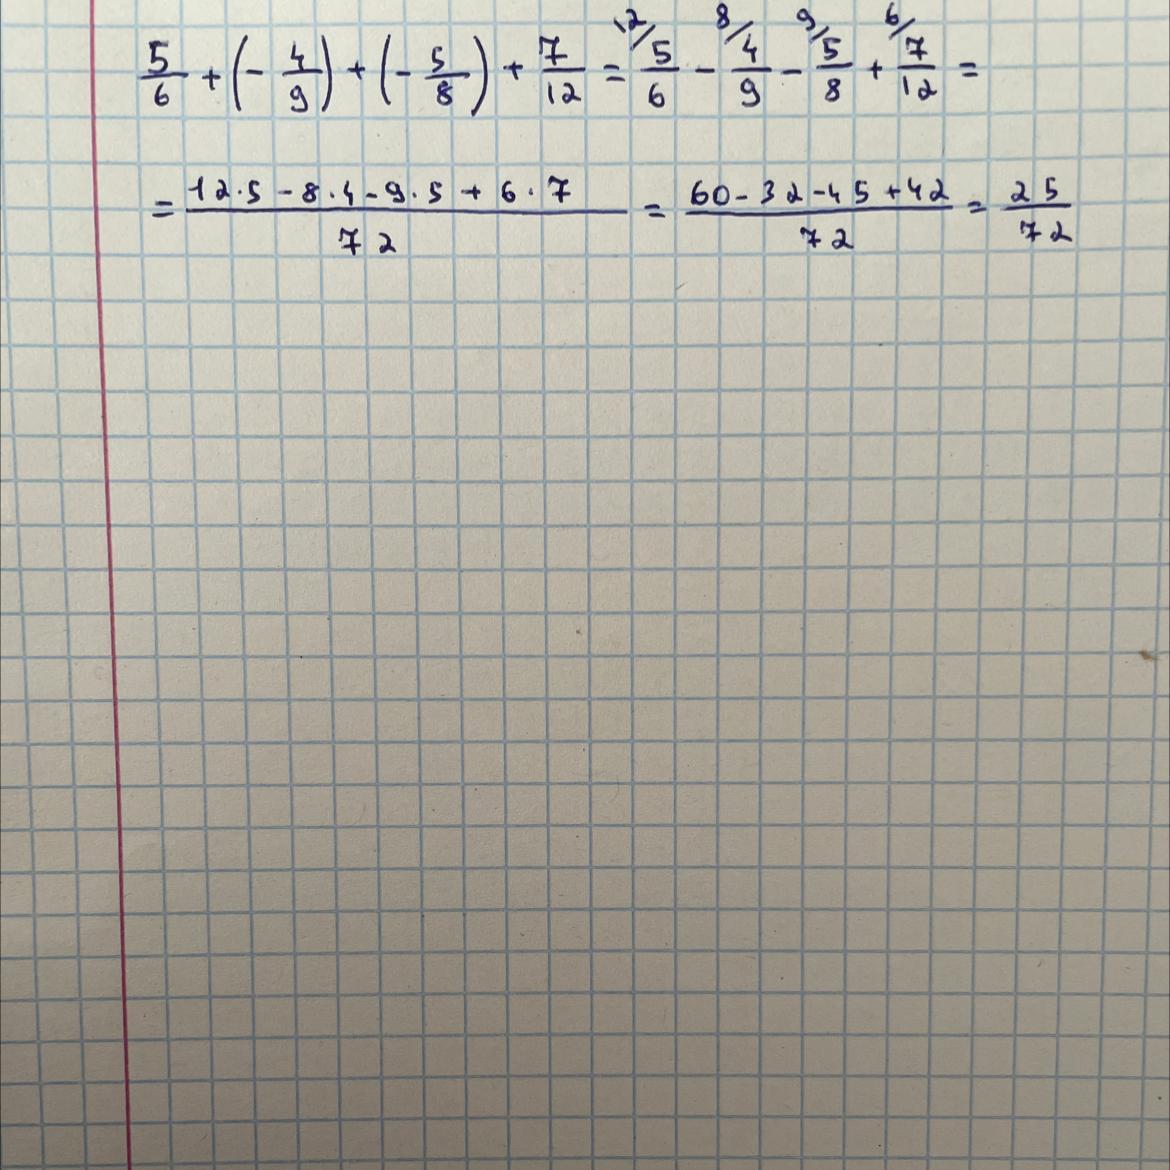 5/6 + (- 4/9) + (- 5/8) + 7/12 = 12/ 5/6 - 8/ 4/9 - 9/ 5/8 + 6/ 7/12 =
= 12·5 - 8·4 - 9·5 + 6·7 / 72 = 60 - 32 - 45 + 42 / 72 = 25/72